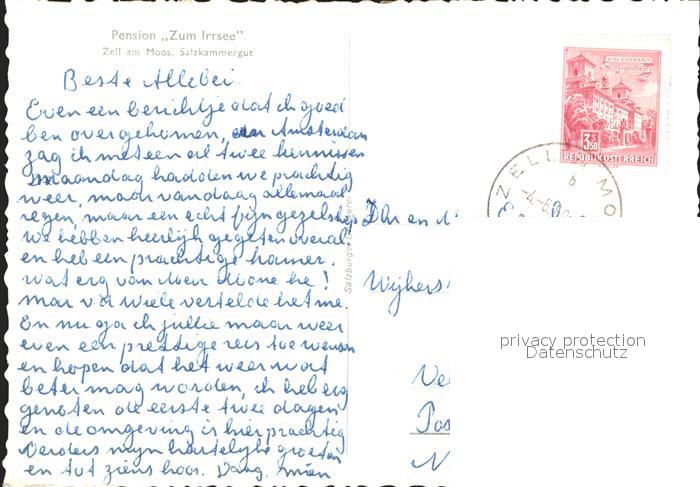 Pension „Zum Irrsee"
Zell am Moos, Salzkammergut
Beste Allebei.
Even een berichtje dat ik goed
ben overgekomen, Amsterdam
zag ik meteen al twee kennissen
maandag hadden we prachtig
weer, maar vandaag allemaal
regen, maar een echt fijn gezelschap
we hebben heerlijk gegeten overal
en heb een prachtige kamer.
wat erg van Mone he!
mar v d Wiele vertelde het me.
En nu ga ik jullie maar weer
even een prettige reis toe wensen
en hopen dat het weer wat
beter mag worden, ik heb erg
genoten de eerste twee dagen
en de omgeving is hier prachtig
Verders mijn hartelijke groeten
en tot ziens hoor. Daag. Mien
Salzburger
3.50
REPUBLIK ÖSTERREICH
ZELL AM MO
6
-4.-6
Dhr en
Wijhers
Ve
Pos
N
privacy protection
Datenschutz